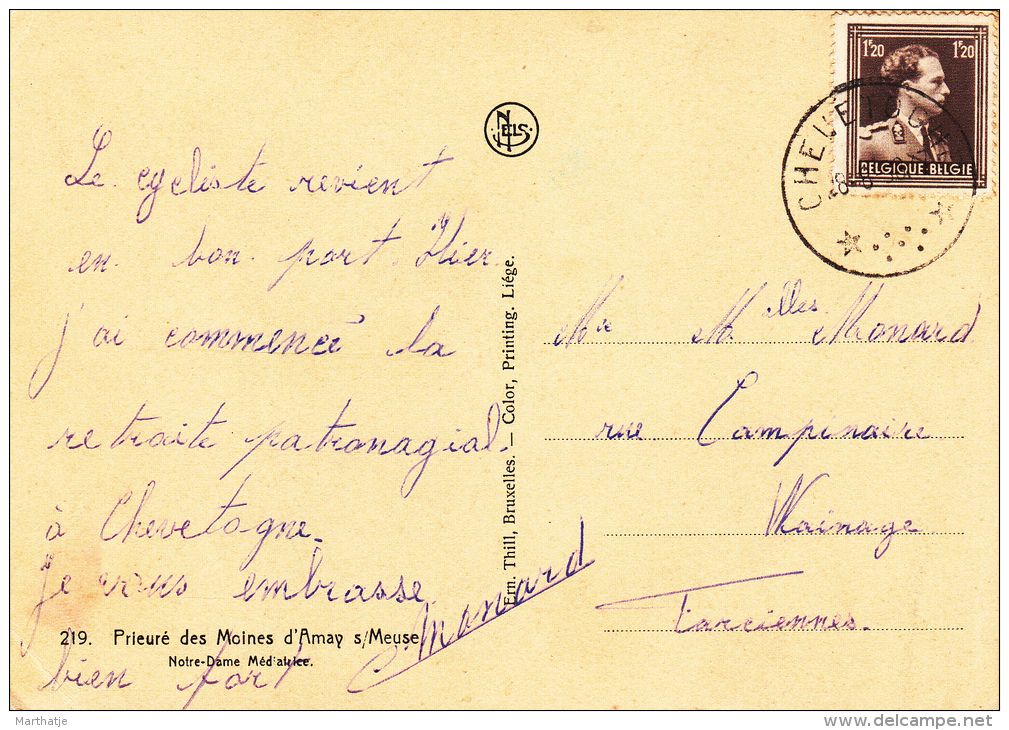 Le cycliste revient
en bon port. Hier
j'ai commencé la
retraite patronagial.
à Chevetogne.
je vous embrasse
bien fort
C. Monard
219. Prieuré des Moines d'Amay s/Meuse
Notre-Dame Médiatrice.
NELS
Ern. Thill, Bruxelles. — Color, Printing. Liége.
1F20 1F20
BELGIQUE-BELGIE
CHEVETOGNE
Mr M. Melles Monard
rue Campinaire
Wainage
Farciennes.
Marthatje
www.delcampe.net